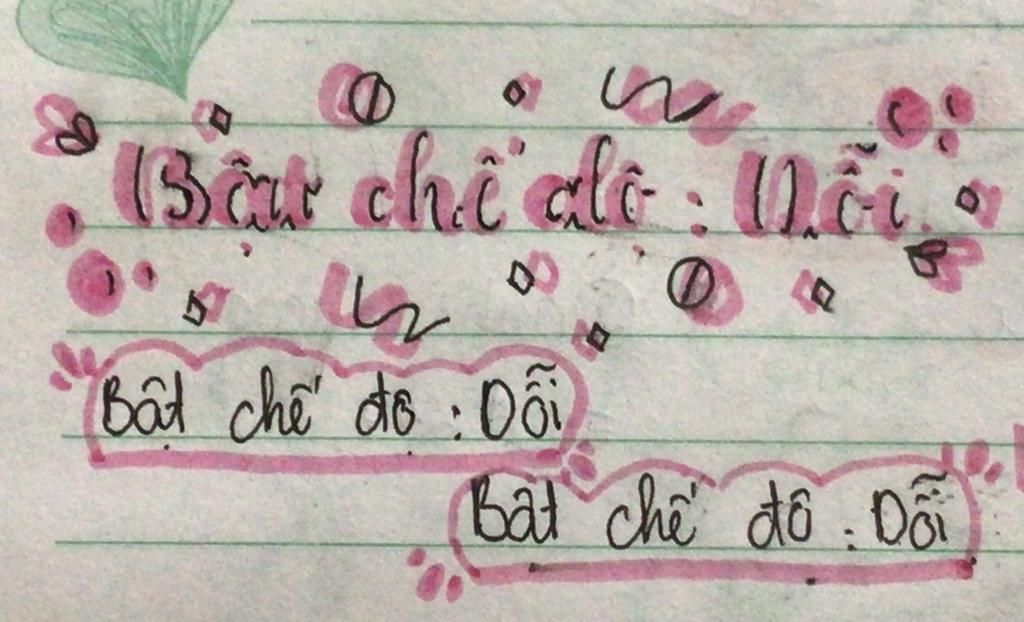 Bật chế độ : Dỗi
Bật chế độ : Dỗi
Bật chế độ : Dỗi